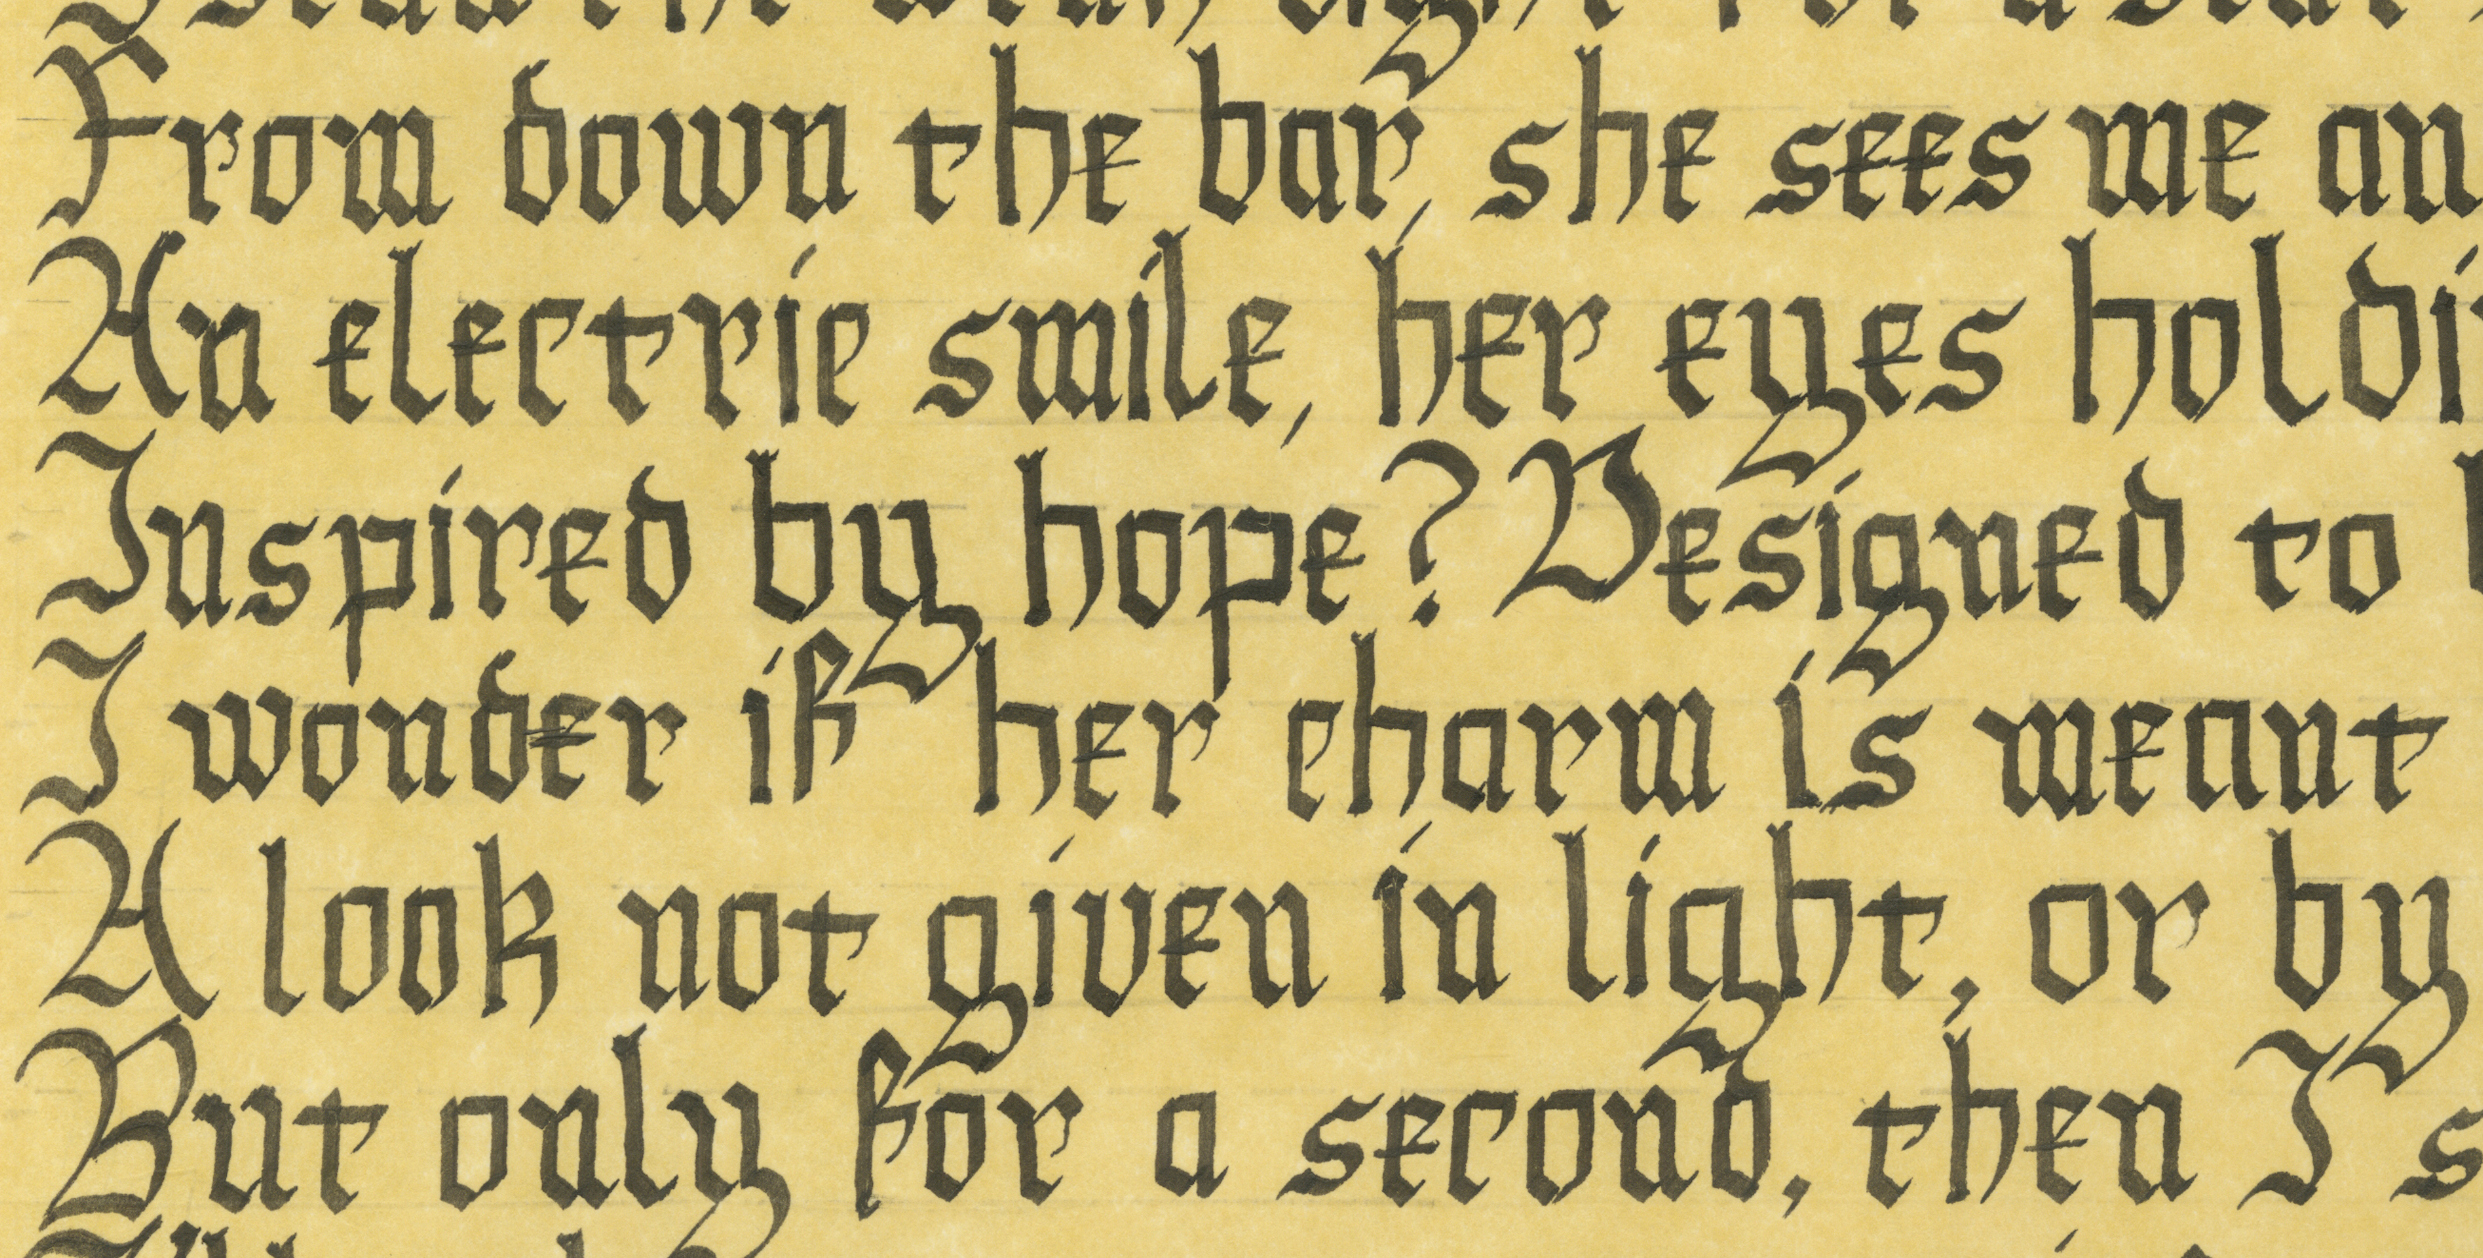 From down the bar, she sees me an
An electric smile, her eyes holdi
Inspired by hope? Designed to
I wonder if her charm is meant
A look not given in light, or by
But only for a second, then I s